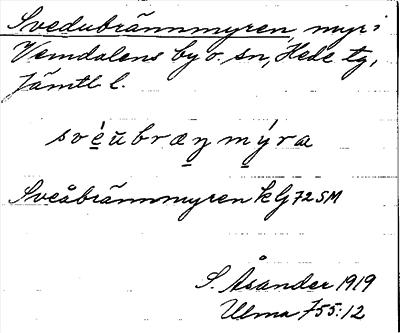 Svedubrännmyren, myr i
Vemdalens by o. sn, Hede tg,
Jämtl l.
svéŭbræŋmýra
Sveåbrännmyren kG 72 SM
S. Åsander 1919
Ulma 755:12